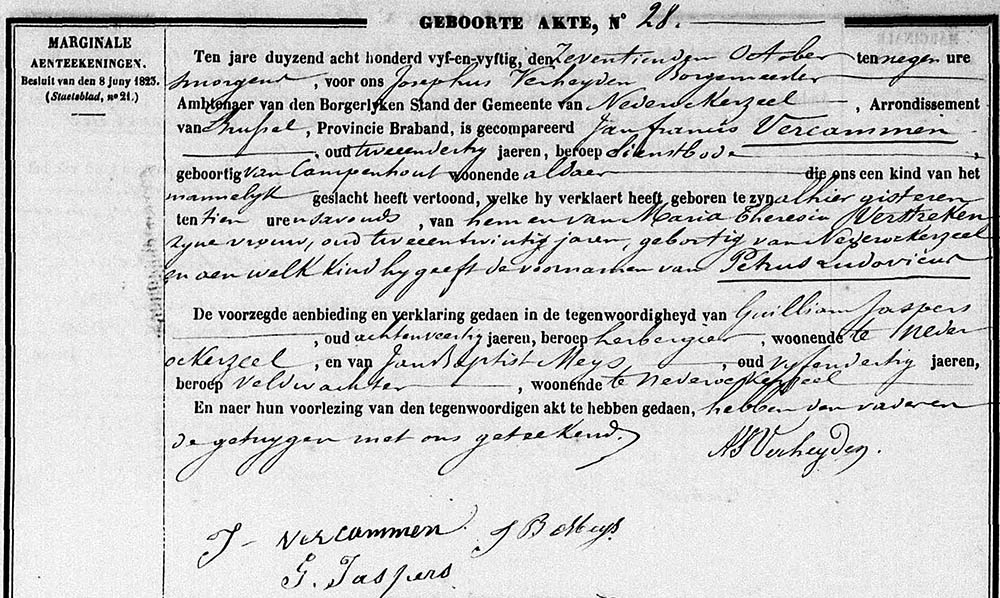 GEBOORTE AKTE, N° 28.
MARGINALE
AENTEEKENINGEN.
Besluit van den 8 juny 1823.
(Staetsblad, n° 21.)
Ten jare duyzend acht honderd vyf-en-vyftig, den Zeventienden October ten negen ure
smorgens, voor ons Josephus Verheyden Borgemeester
Ambtenaer van den Borgerlyken Stand der Gemeente van Nederockerzeel, Arrondissement
van Brussel, Provincie Braband, is gecompareerd Jan francis Vercammen
, oud tweeendertig jaeren, beroep dienstbode
geboortig van Campenhout woonende aldaer die ons een kind van het
mannelyk geslacht heeft vertoond, welke hy verklaert heeft geboren te zyn alhier gisteren
ten tien uren savonds, van hem en van Maria Theresia Verstreken
zyne vrouw, oud tweeentwintig jaren, gebortig van Nederockerzeel
en aen welk kind hy geeft de voornamen van Petrus Ludovicus
De voorzegde aenbieding en verklaring gedaen in de tegenwoordigheyd van Guilliam Jaspers
, oud achtenveertig jaeren, beroep herbergier, woonende te Neder
ockerzeel, en van Jan Baptist Meys oud vyfendertig jaeren,
beroep veldwachter, woonende te nederockerzeel
En naer hun voorlezing van den tegenwoordigen akt te hebben gedaen, hebben den vader en
de getuygen met ons geteekend.
Verheyden.
J - vercammen J B Meys
G. Jaspers